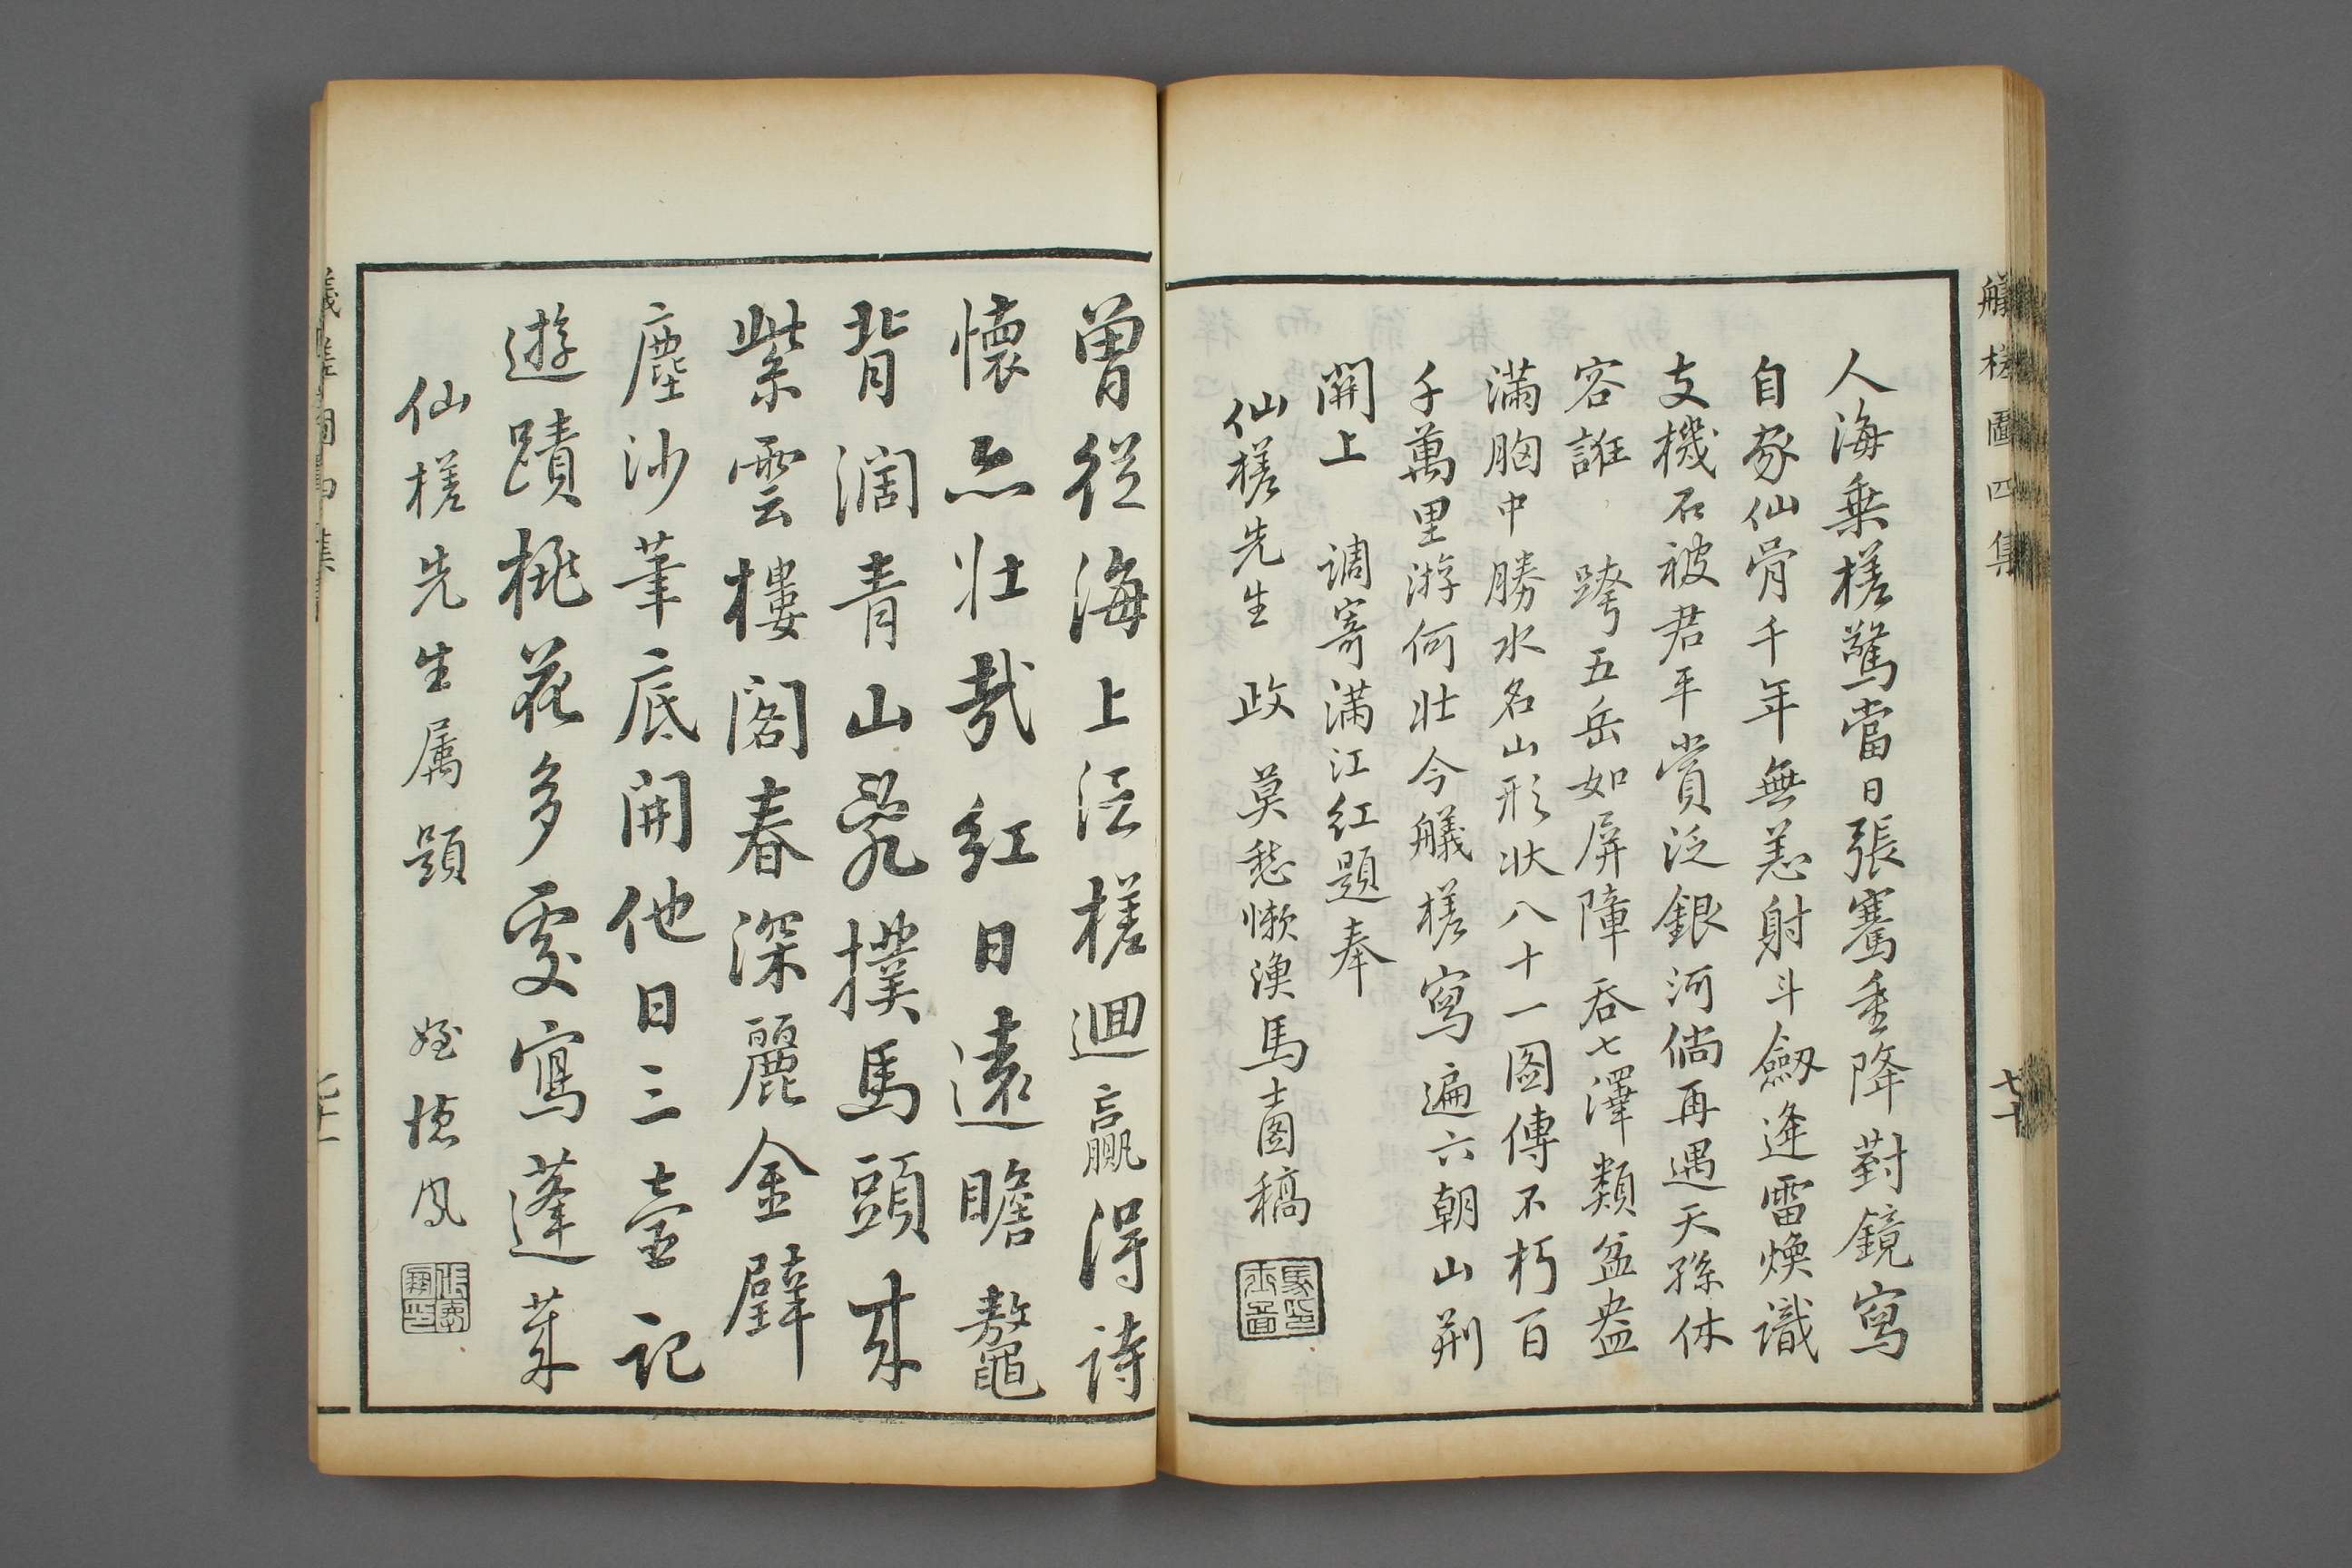 艤槎圖四集
七十
人海乗槎驚當日張騫重降對鏡寫
自家仙骨千年無恙射斗劔逢雷煥識
支機石被君平賞泛銀河倘再遇天孫休
容誑 跨五岳如屏障吞七澤類盆盎
滿胸中勝水名山形狀八十一图傳不朽百
千萬里游何壯今艤槎寫遍六朝山荆
關上 調寄滿江紅題奉
仙槎先生 政 莫愁懒渔馬士图稿
曽從海上泛槎迴贏得詩
懷亦壯哉紅日遠瞻鼇
背濶青山亂撲馬頭来
紫雲樓閣春深麗金壁
塵沙筆底開他日三壺記
遊蹟桃花多處寫蓬莱
仙槎先生属題 姪德凤
七十一